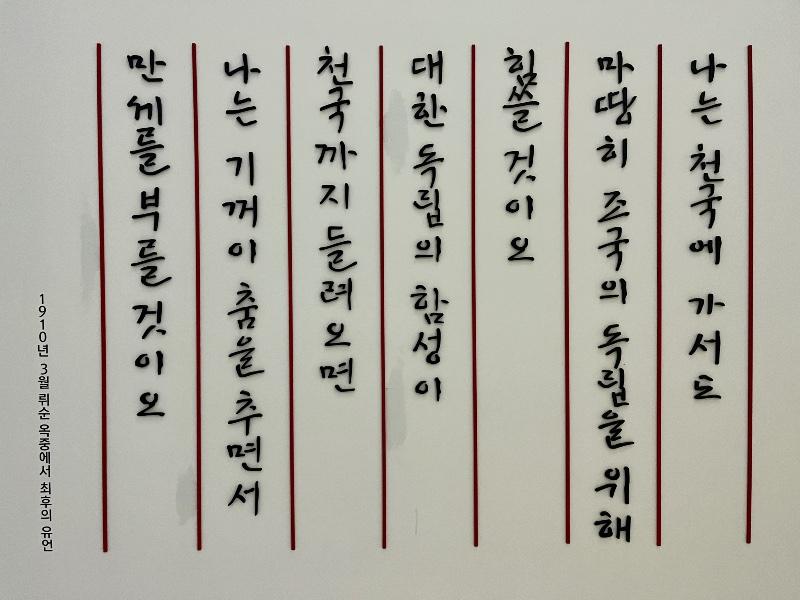 나는 천국에 가서도
마땅히 조국의 독립을 위해
힘쓸 것이오
대한 독립의 함성이
천국까지 들려오면
나는 기꺼이 춤을 추면서
만세를 부를 것이오
1910년 3월 뤼순 옥중에서 최후의 유언